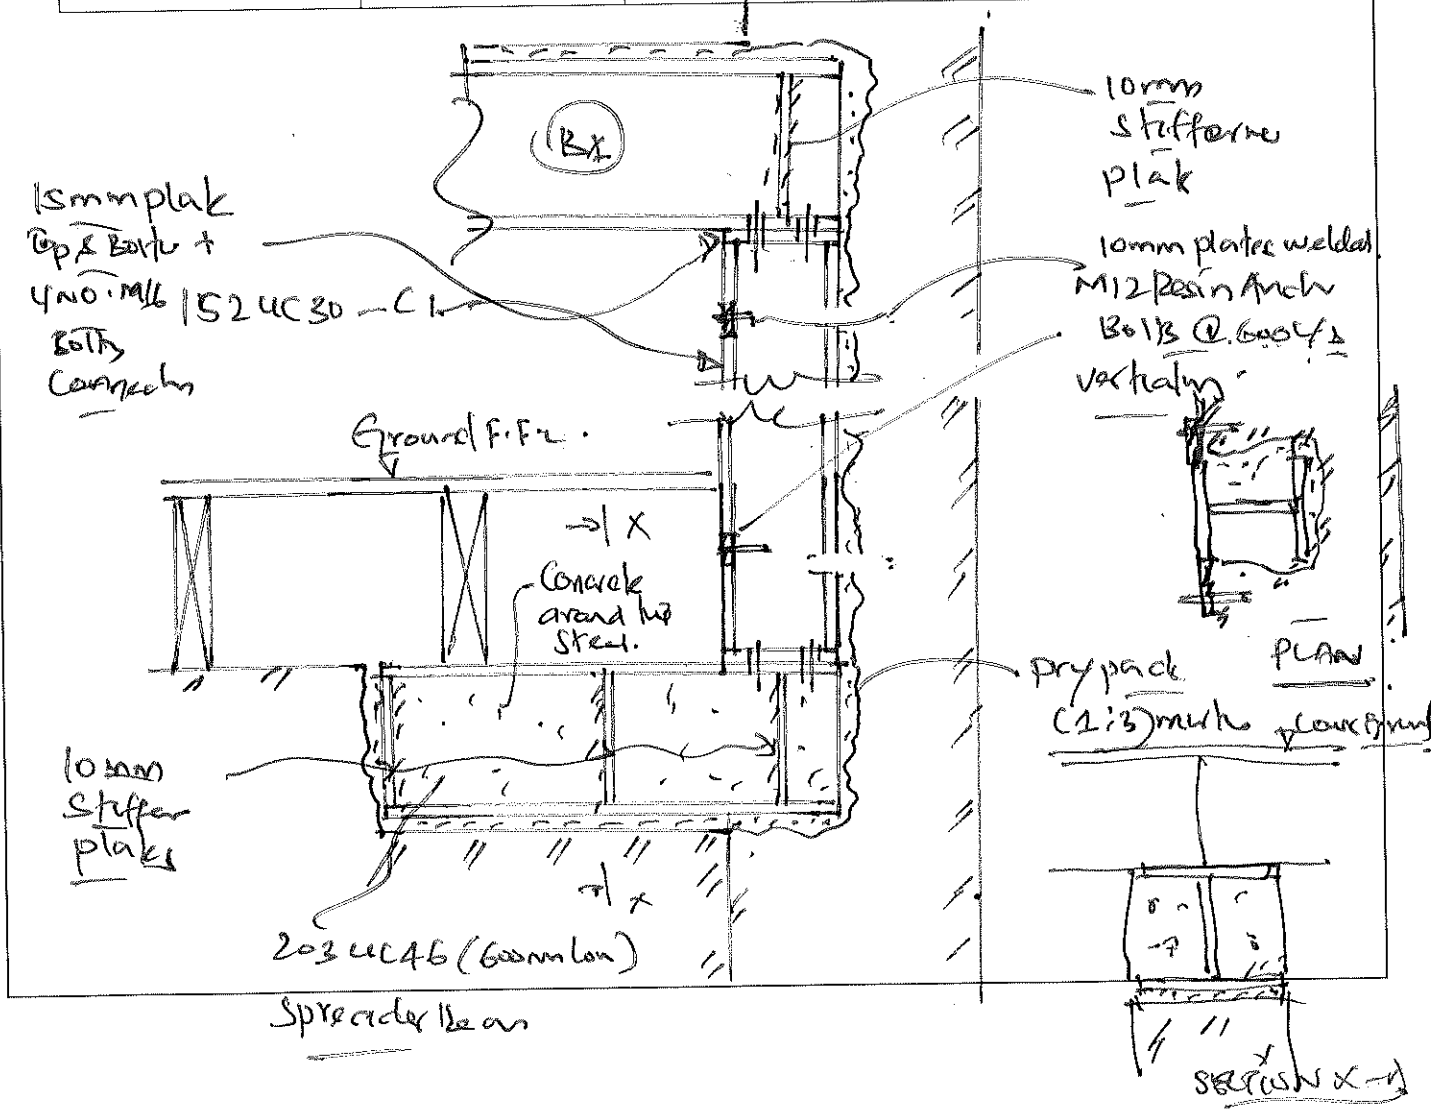 BX
10mm
Stiffener
plate
15mm plate
Top & Bottm +
4NO. M16
Bolts
Connection
152 UC30 — C1
10mm plates welded
M12 Resin Anch
Bolts @ 600 c/s
vertically.
Ground F.F.L.
X
Concrete
around the
Steel.
PLAN
Dry pack
(1:3)
10mm
Stiffener
plates
x
203 UC46 (600mm long)
Spreader Beam
SECTION X-X